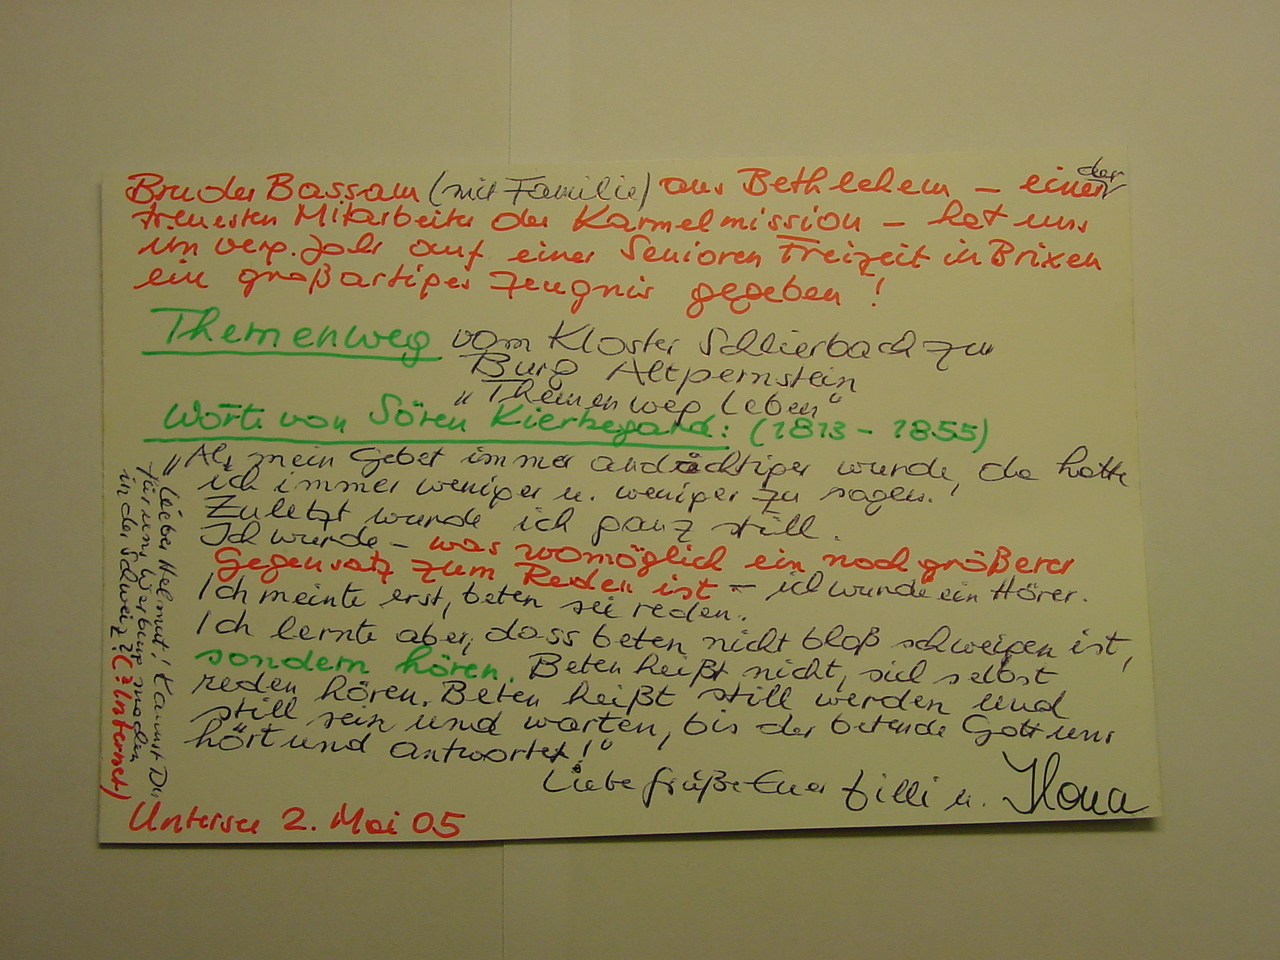 Bruder Bassam (mit Familie) aus Bethlehem – einer der
treuesten Mitarbeiter der Karmelmission – hat uns
im verg. Jahr auf einer Senioren Freizeit in Brixen
ein großartiges Zeugnis gegeben!
Themenweg vom Kloster Schlierbach zur
Burg Altpernstein
"Themenweg Leben"
Wort von Sören Kierkegard: (1813 – 1855)
"Als mein Gebet immer andächtiger wurde, da hatte
ich immer weniger u. weniger zu sagen.
Zuletzt wurde ich ganz still.
Ich wurde – was womöglich ein noch größerer
Gegensatz zum Reden ist – ich wurde ein Hörer.
Ich meinte erst, beten sei reden.
Ich lernte aber, dass beten nicht bloß schweigen ist,
sondern hören. Beten heißt nicht, sich selbst
reden hören. Beten heißt still werden und
still sein und warten, bis der betende Gott uns
hört und antwortet!"
Liebe Grüße Euer Filli u. Ilona
Untersee 2. Mai 05
Lieber Helmut! Kannst Du
für uns Werbung machen
in der Schweiz? (?Internet)